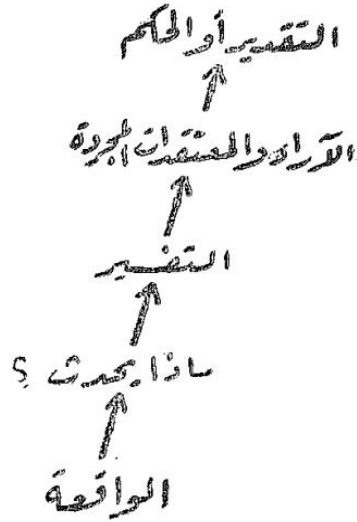 التقدير أو الحكم
الآراء والمعتقدات المجردة
التفسير
ماذا يحدث ؟
الواقعة